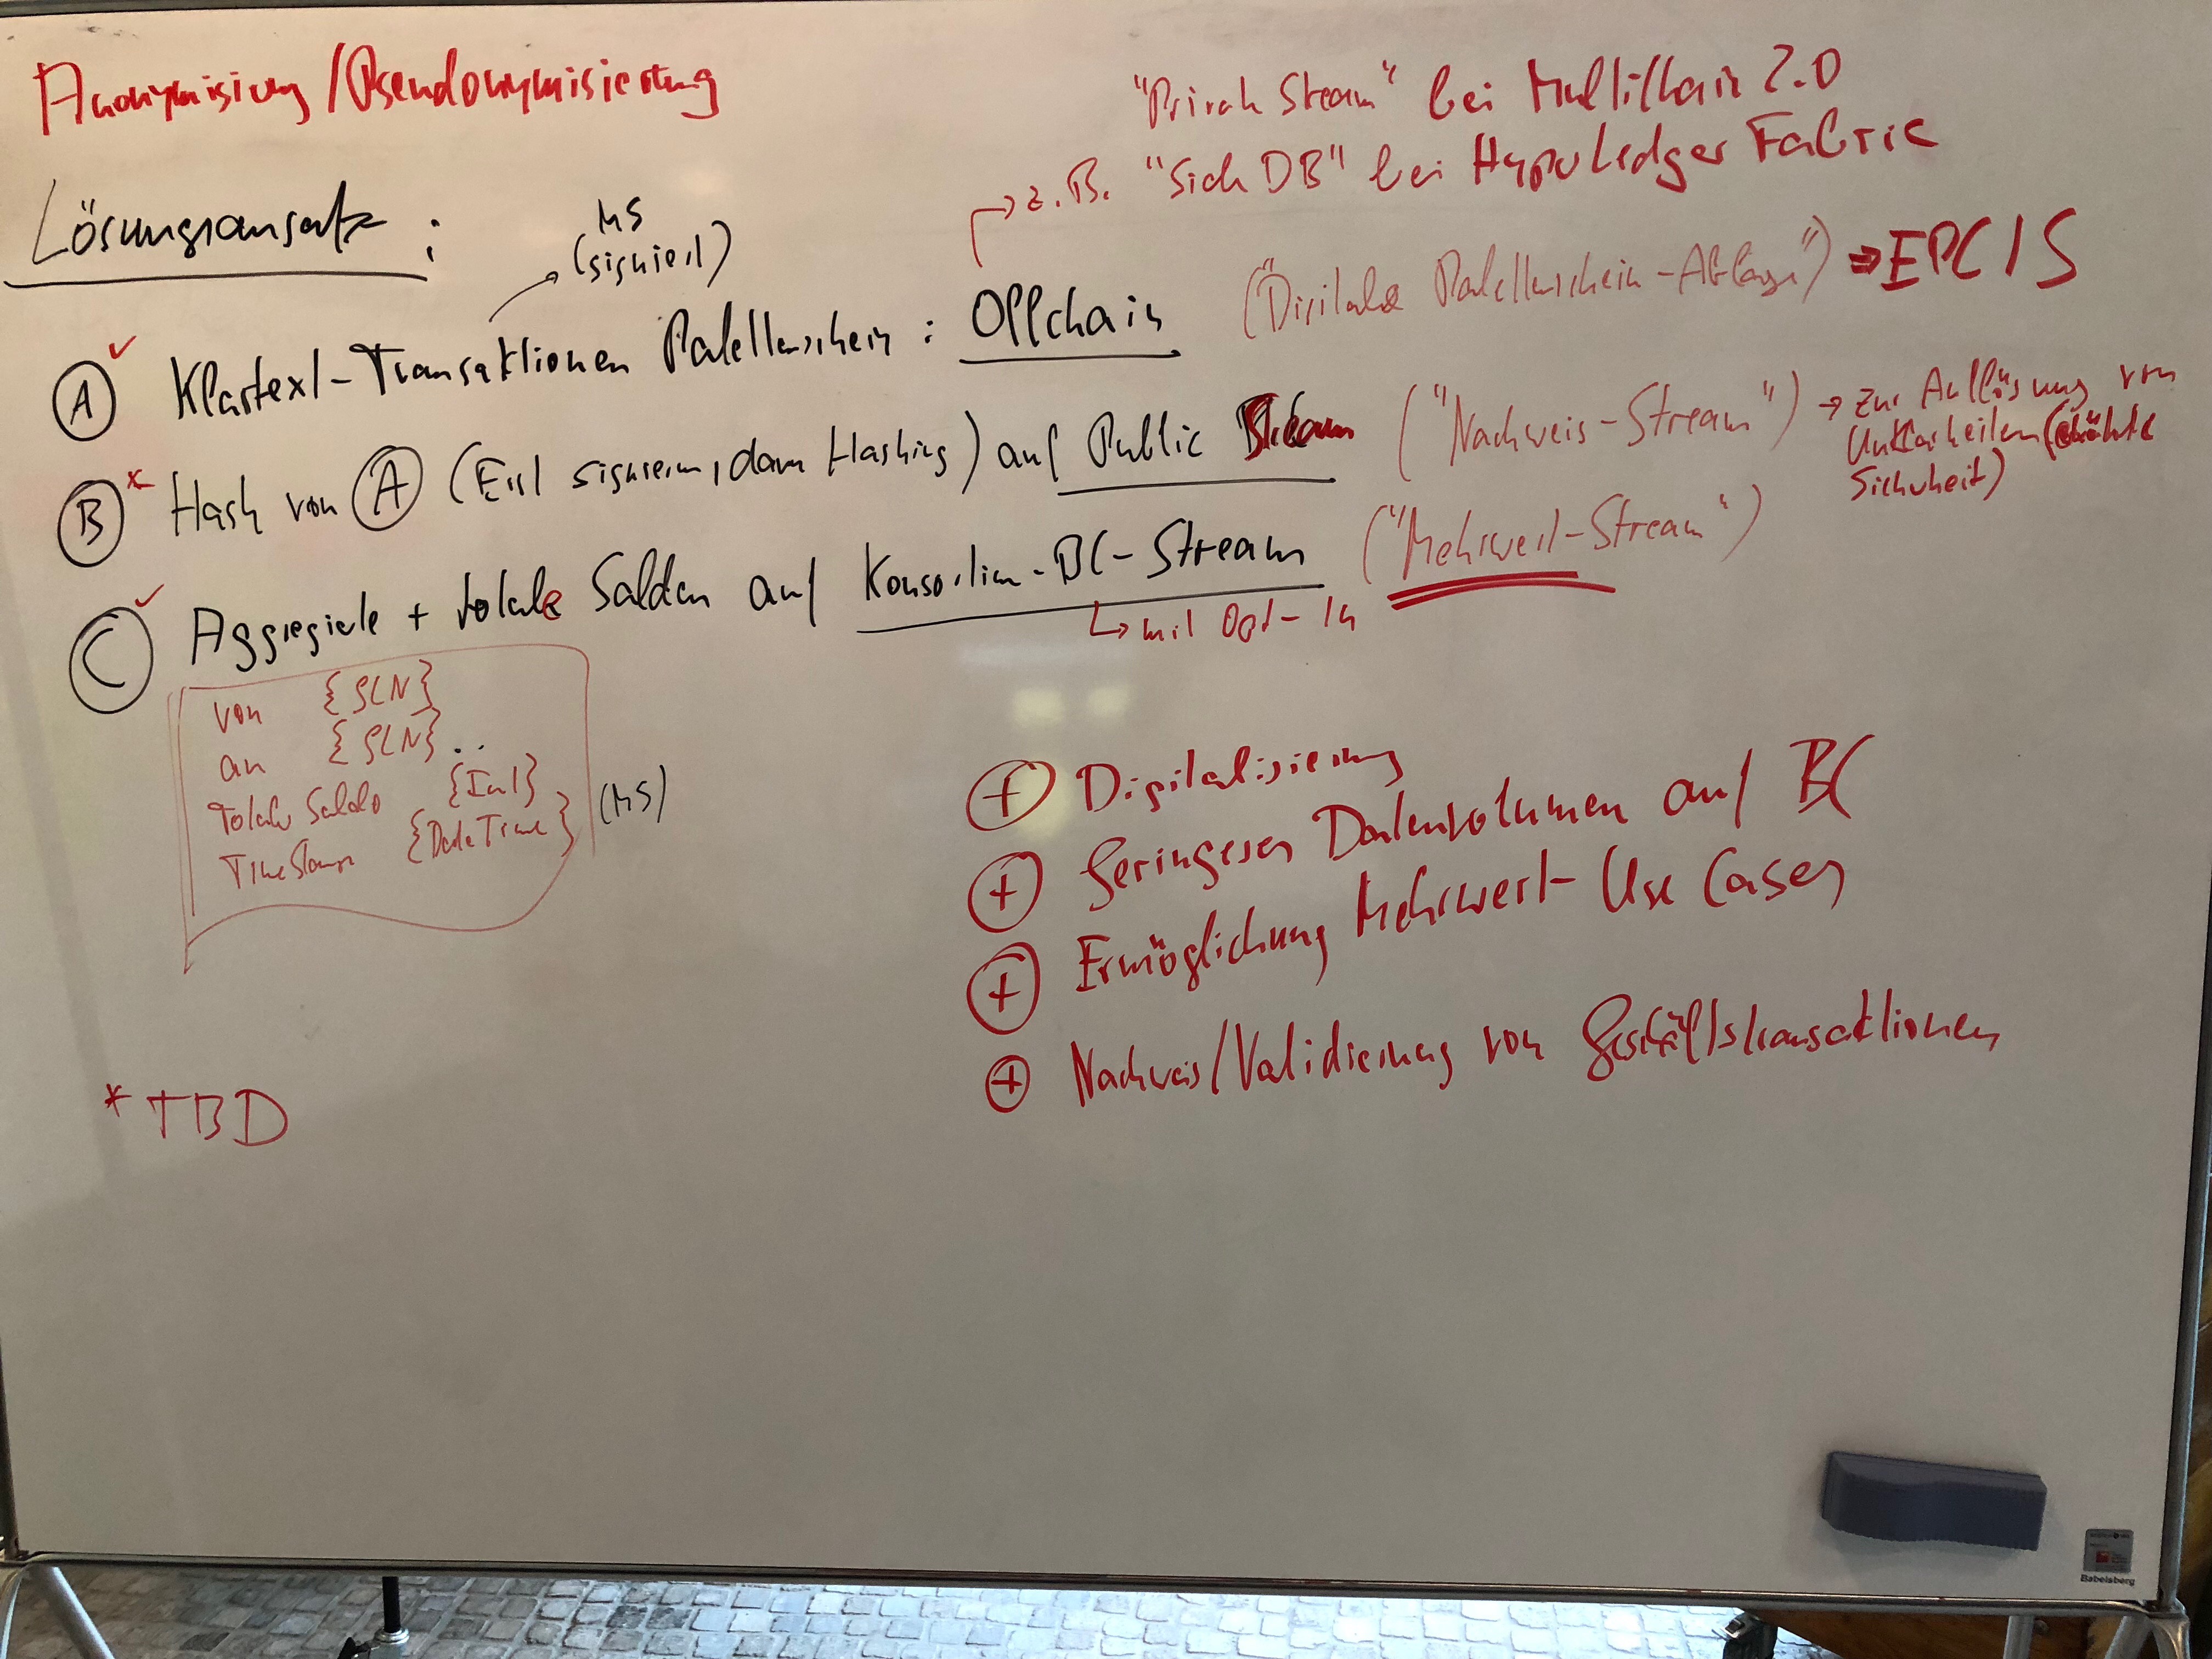 Anonymisierung/Pseudonymisierung
"Private Stream" bei Multichain 2.0
→ z.B. "Side DB" bei Hyperledger Fabric
Lösungsansatz:
MS
(signiert)
A ✓ Klartext-Transaktionen Palettenschein: Offchain ("Digitale Palettenschein-Ablage") ⇒ EPCIS
B * Hash von A (Erst signieren, dann Hashing) auf Public Stream ("Nachweis-Stream") → zur Auflösung von
Unklarheiten (erhöhte
Sicherheit)
C ✓ Aggregierte + totale Salden auf Konsortien-BC-Stream ("Mehrwert-Stream")
↳ mit Opt-In
von {GLN}
an {GLN}..
Totaler Saldo {Int}
TimeStamp {DateTime}
(MS)
+ Digitalisierung
+ Geringeres Datenvolumen auf BC
+ Ermöglichung Mehrwert-Use Cases
+ Nachweis/Validierung von Geschäftstransaktionen
* TBD
Babelsberg